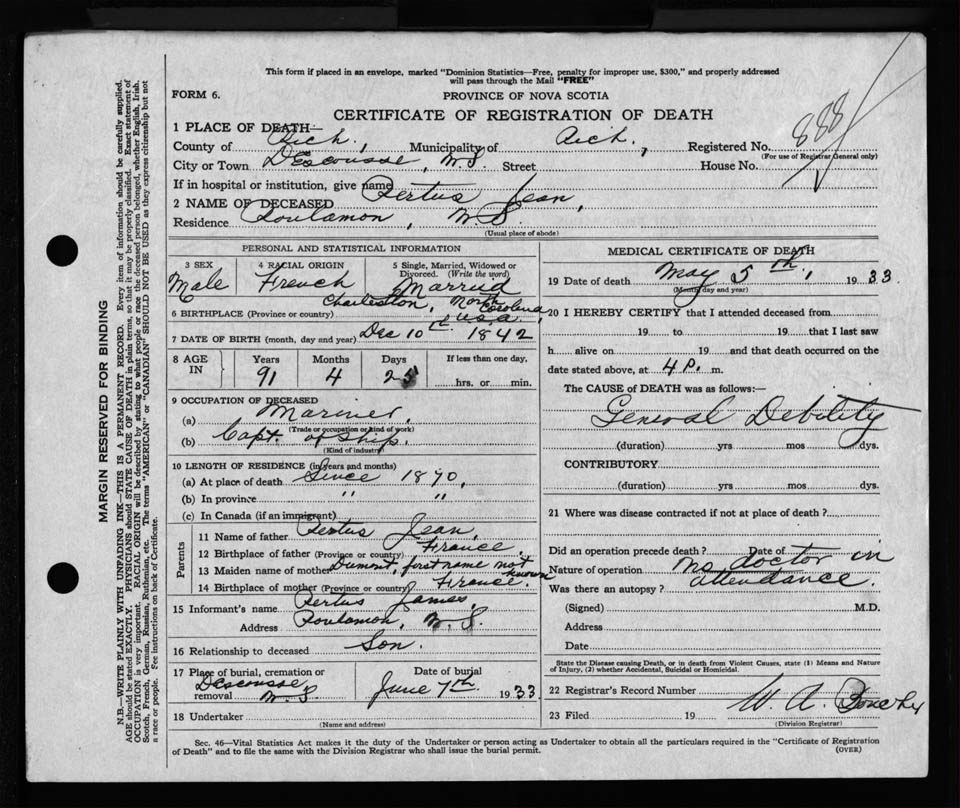 This form if placed in an envelope, marked "Dominion Statistics—Free, penalty for improper use, $300," and properly addressed
will pass through the Mail "FREE"
FORM 6.
PROVINCE OF NOVA SCOTIA
CERTIFICATE OF REGISTRATION OF DEATH
888
1 PLACE OF DEATH—
County of Rich., Municipality of Rich., Registered No.
(For use of Registrar General only)
City or Town Descousse, N.S. Street House No.
If in hospital or institution, give name
2 NAME OF DECEASED Pertus Jean,
Residence Poulamon, N.S.
(Usual place of abode)
PERSONAL AND STATISTICAL INFORMATION
3 SEX 4 RACIAL ORIGIN 5 Single, Married, Widowed or
Divorced. (Write the word)
Male French Married
Charleston, North Carolena
6 BIRTHPLACE (Province or country) U.S.A.,
7 DATE OF BIRTH (month, day and year) Dec 10th 1842
8 AGE IN Years Months Days If less than one day,
91 4 25 hrs. or min.
9 OCCUPATION OF DECEASED
(a) Mariner,
(Trade or occupation or kind of work)
(b) Capt. of Ship.
(Kind of industry)
10 LENGTH OF RESIDENCE (in years and months)
(a) At place of death Since 1870,
(b) In province " "
(c) In Canada (if an immigrant)
Parents
11 Name of father Pertus Jean,
12 Birthplace of father (Province or country) France.
13 Maiden name of mother Dumont, first name not known
14 Birthplace of mother (Province or country) France.
15 Informant's name Pertus James,
Address Poulamon, N.S.
16 Relationship to deceased Son.
17 Place of burial, cremation or Date of burial
removal Descousse N.S June 7th 1933.
18 Undertaker
(Name and address)
MEDICAL CERTIFICATE OF DEATH
19 Date of death May 5th, 1933
(Month, day and year)
20 I HEREBY CERTIFY that I attended deceased from
19 to 19 that I last saw
h alive on 19 and that death occurred on the
date stated above, at 4 P. m.
The CAUSE OF DEATH was as follows:—
General Debility
(duration) yrs mos dys.
CONTRIBUTORY
(duration) yrs mos dys.
21 Where was disease contracted if not at place of death?
Did an operation precede death? Date of
Nature of operation No doctor in
Was there an autopsy? attendance.
(Signed) M.D.
Address
Date
State the Disease causing Death, or in death from Violent Causes, state (1) Means and Nature
of Injury, (2) whether Accidental, Suicidal or Homicidal.
22 Registrar's Record Number
W. A.
23 Filed 19
(Division Registrar)
Sec. 46—Vital Statistics Act makes it the duty of the Undertaker or person acting as Undertaker to obtain all the particulars required in the "Certificate of Registration
of Death" and to file the same with the Division Registrar who shall issue the burial permit. (OVER)
MARGIN RESERVED FOR BINDING
N.B.—WRITE PLAINLY WITH UNFADING INK—THIS IS A PERMANENT RECORD. Every item of information should be carefully supplied.
AGE should be stated EXACTLY. PHYSICIANS should STATE CAUSE OF DEATH in plain terms, so that it may be properly classified. Exact statement of
OCCUPATION is very important. RACIAL ORIGIN will be described by stating to what people or race the deceased person belonged, whether English, Irish,
Scotch, French, German, Russian, Ruthenian, etc. The terms "AMERICAN" or "CANADIAN" SHOULD NOT BE USED as they express citizenship but not
a race or people. See instructions on back of Certificate.